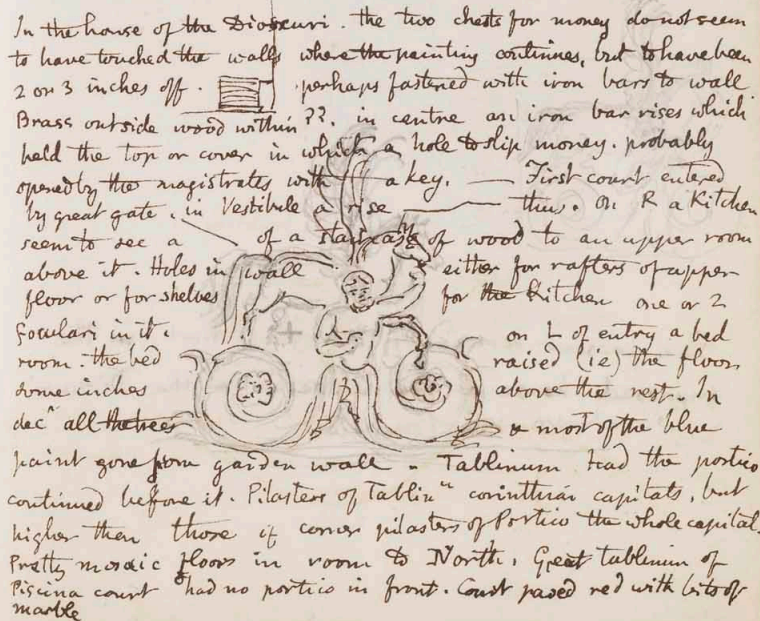 In the house of the Dioscuri. the two chests for money do not seem
to have touched the walls where the painting continues, but to have been
2 or 3 inches off. perhaps fastened with iron bars to wall
Brass outside wood within ??. in centre an iron bar rises which
held the top or cover in which a hole to slip money. probably
opened by the magistrates with a key. — First court entered
by great gate. in Vestibule a rise — thus. on R a Kitchen
seem to see a of a staircase of wood to an upper room
above it. Holes in wall either for rafters of upper
floor or for shelves for the Kitchen one or 2
foculari in it. on L of entry a bed
room. the bed raised (ie) the floor
some inches above the rest. In
dec.n all the trees & most of the blue
paint gone from garden wall - Tablinum had the portico
continued before it. Pilasters of Tablin.m corinthian capitals, but
higher then those of corner pilasters of Portico the whole capital.
Pretty mosaic floors in room to North. Great tablinum of
Piscina court had no portico in front. Court paved red with bits of
marble